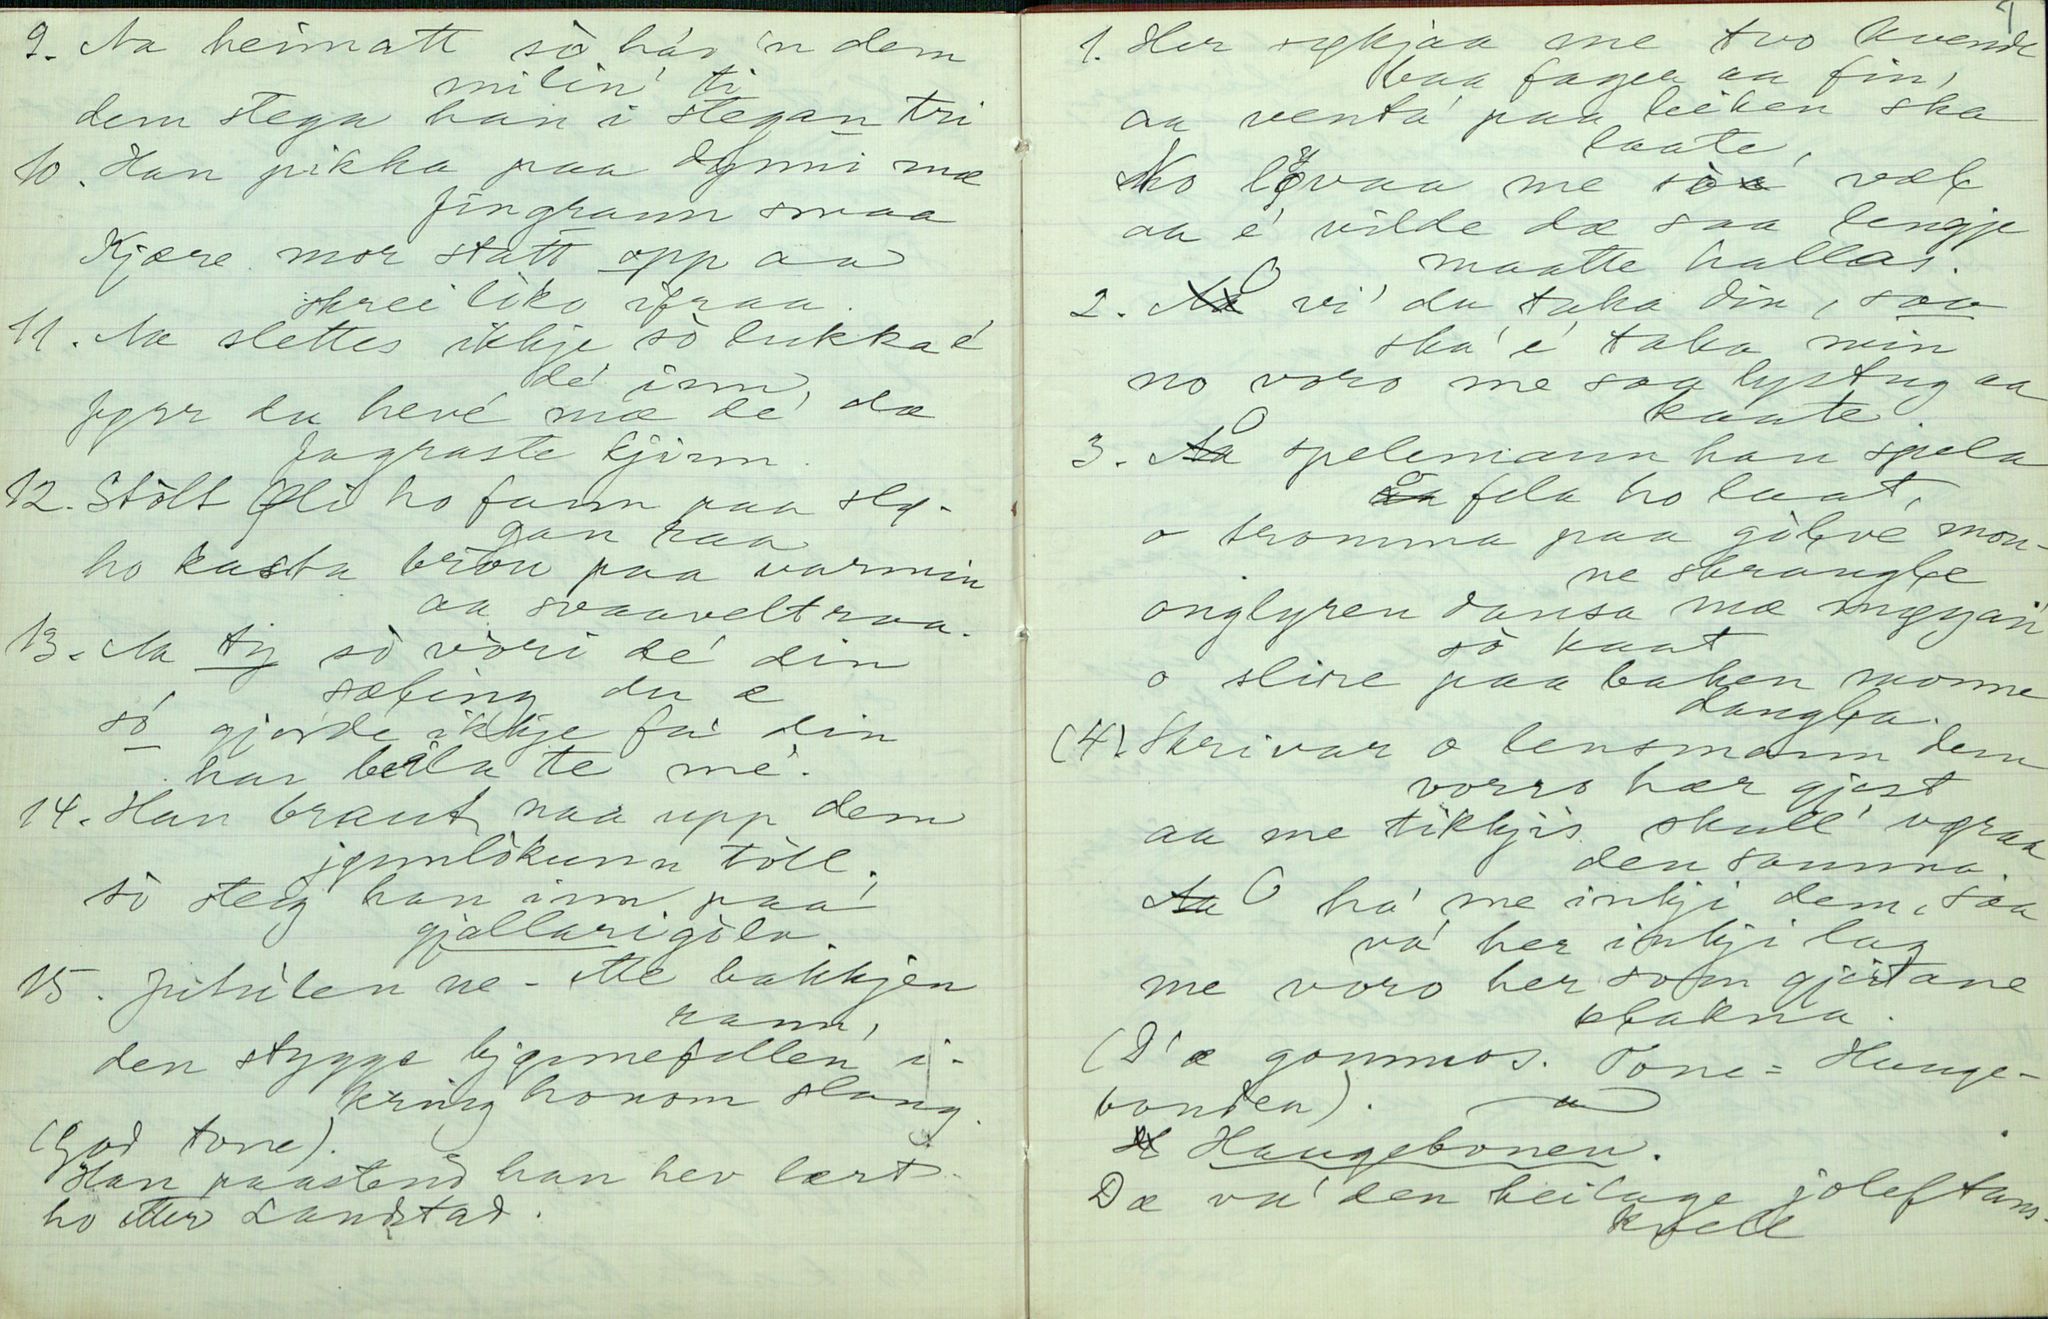 9. Aa heimatt sò há'n dem
milin' ti
dem stega han i stegan tri
10. Han pikka paa dynni mæ
fingrann smaa
Kjære mor statt opp aa
skrei liko ifraa.
11. Aa slettes ikkje sò lukka é
dé inn,
fyrr du hevé mæ dé, dæ
fagraste kjinn.
12. Stòlt Øli ho fann paa slø-
gan raa
ho kasta briou paa varmin
aa svaaveltraa.
13. Aa tig sò vòri dé din
sæling du æ
só gjorde ikkje fá din
han beila te mé.
14. Han braut naa upp dem
jønnlòkunn tòll.
sò steig han inn paa'
gjallarigòla.
15. Jutulen ne-atte bakkjen
rann,
den stygge bjønnefellen i-
kring honom slang.
(God tone).
Han paastend han hev lært
ho etter Landstad.
1. Her sykjaa me tvo kvende
baa fager aa fin,
aa venta' paa leiken ska
laate,
No løvaa me sòa væl
aa é vilde dæ saa lengje
maatte hallas.
2. Aa O vi' du taka din, saa
ska' é taka min
no voro me saa lystug aa
kaate
3. Aa O spelemann han spela
aa o fela ho laat,
o tromma paa gòlvé mon-
ne skrangle
onglyren dansa mæ mígyan
sò kaat
o slire paa baken monne
dangla.
(4). Skrivar o lensmann dem
vorro hær gjest
aa me tikkjis skull' vøraa
den samma
Aa O há' me inkji dem, saa
vá' her inkji lag
me voro her som gjeitane
klakna.
(D'æ gommos. Tone = Hauge-
bonden).
H Haugebonen.
Dæ va' den heilage joleftans-
kvell